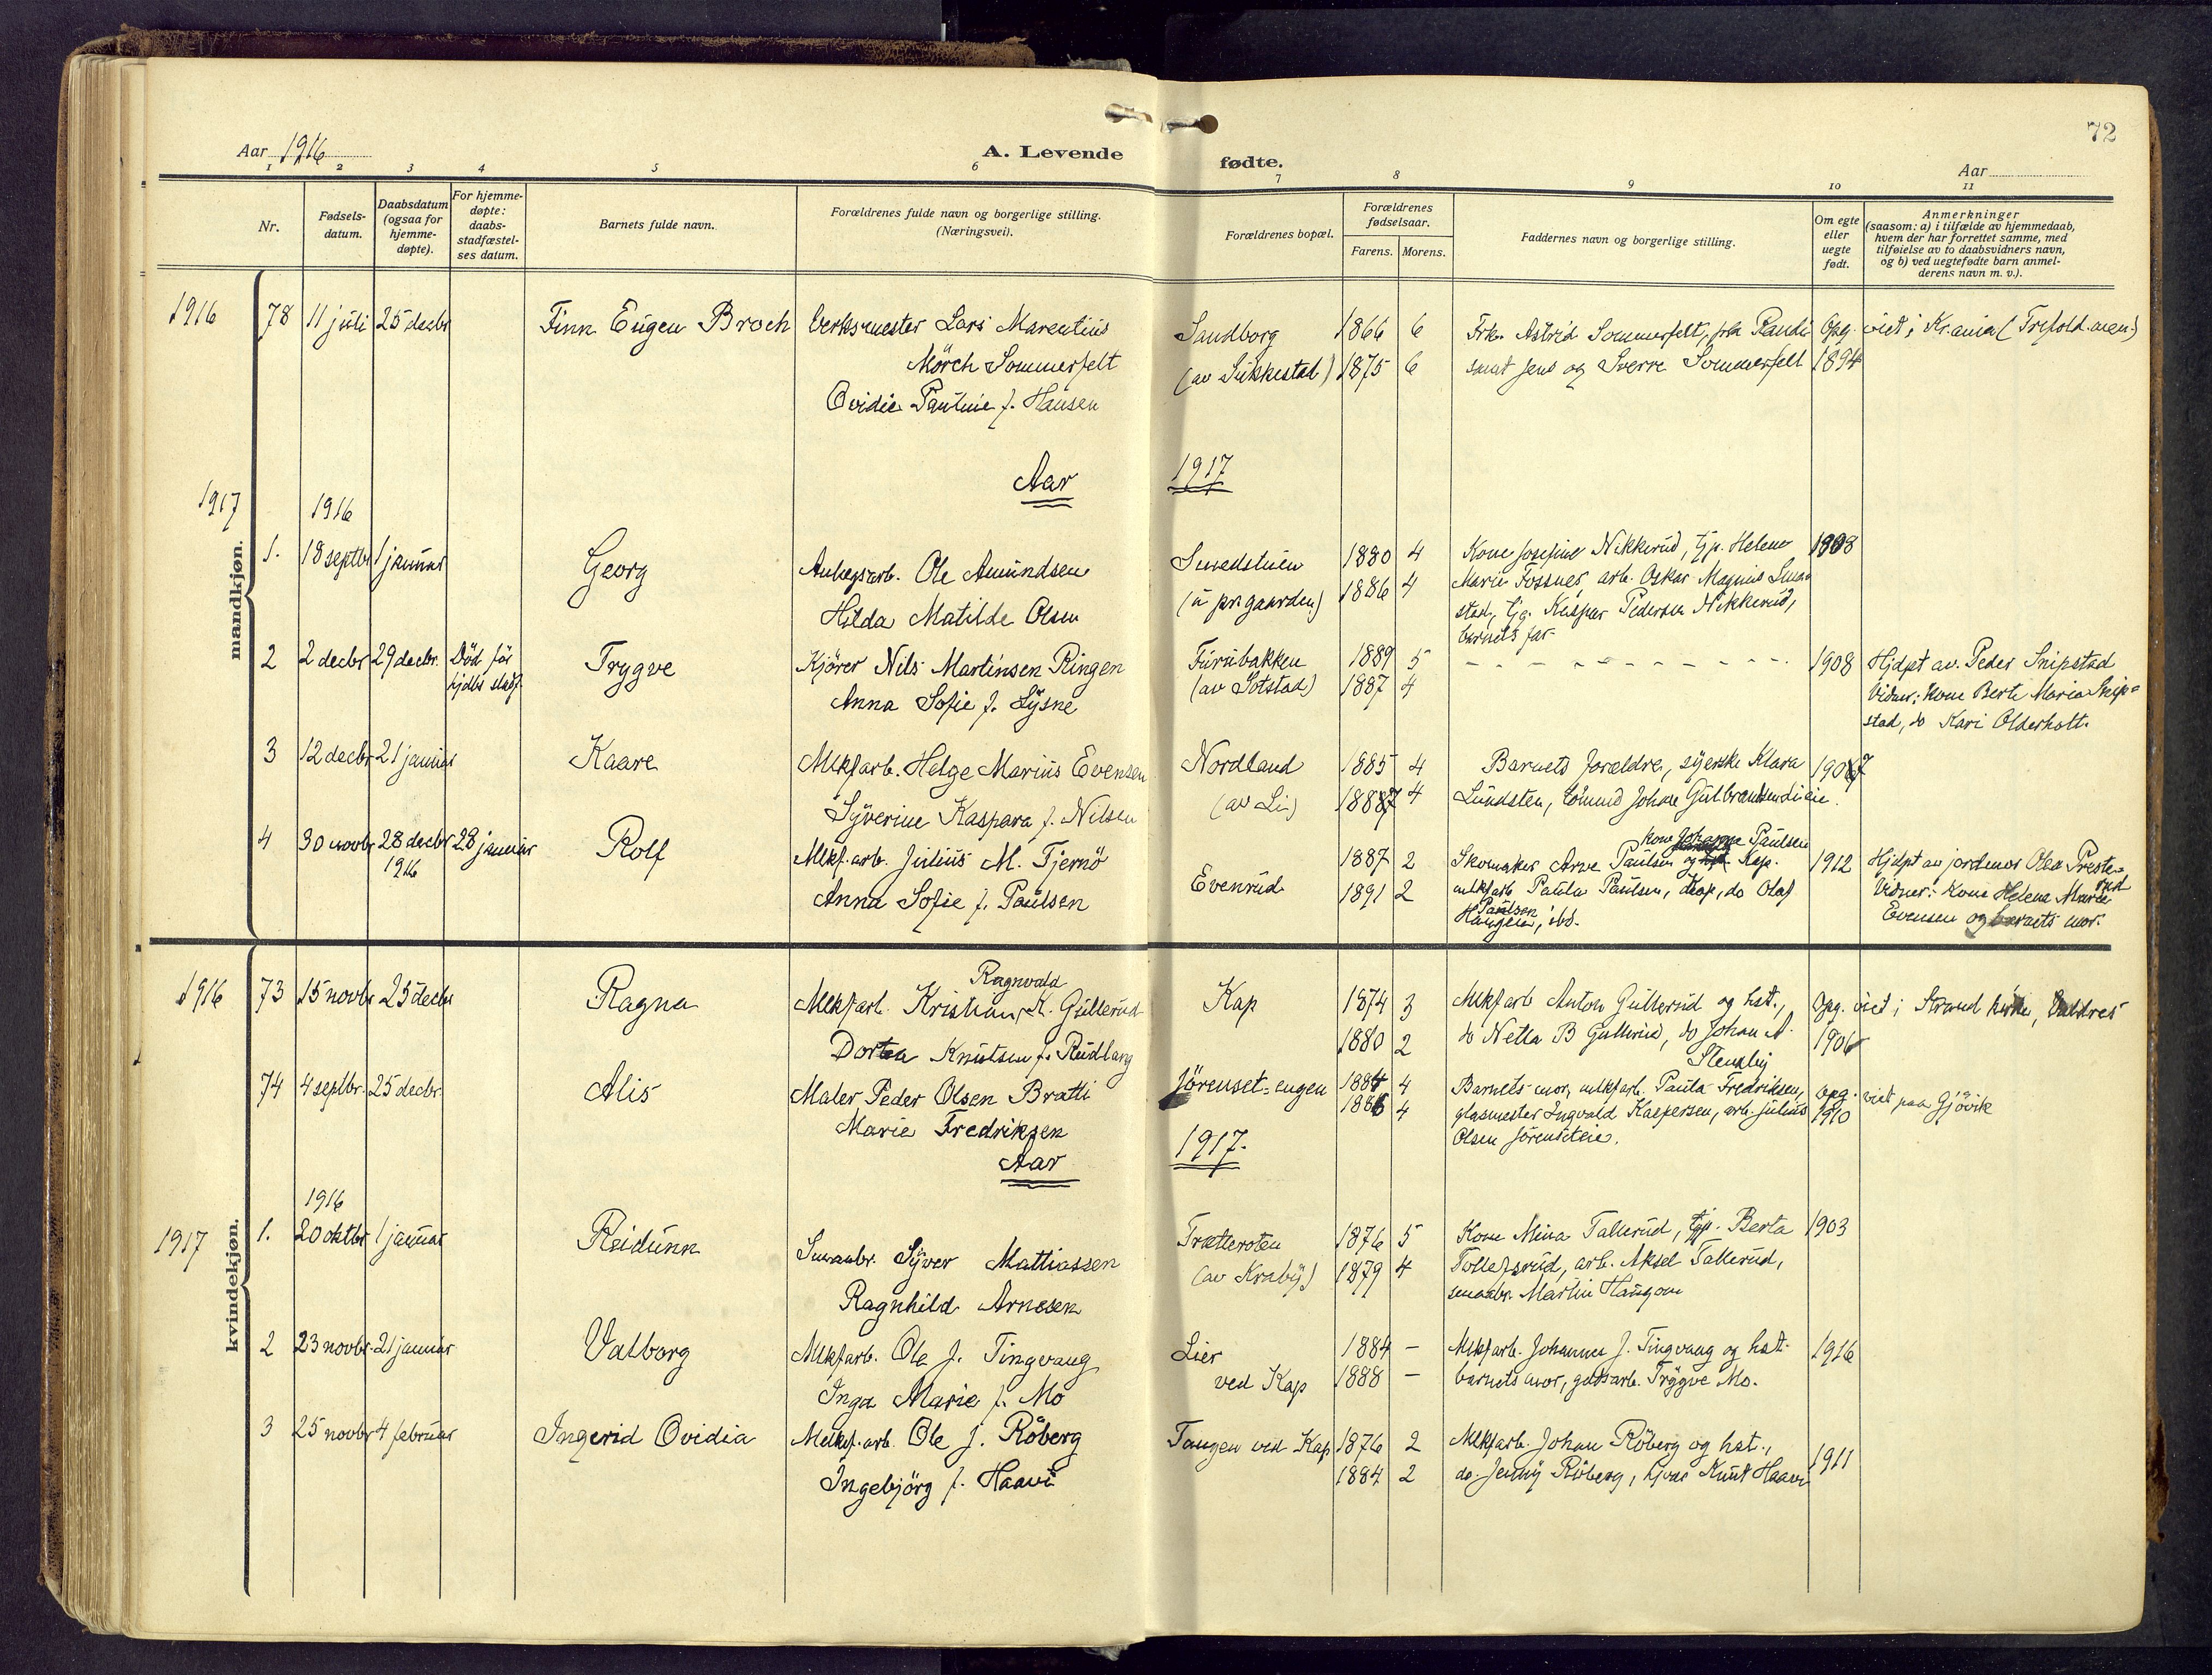 72
Aar 1916
A. Levende fødte.
Aar
1 2 3 4 5 6 7 8 9 10 11
Nr.
Fødsels-
datum.
Daabsdatum
(ogsaa for
hjemme-
døpte).
For hjemme-
døpte:
daabs-
stadfæstel-
ses datum.
Barnets fulde navn.
Forældrenes fulde navn og borgerlige stilling.
(Næringsvei).
Forældrenes bopæl.
Forældrenes
fødselsaar.
Farens. Morens.
Faddernes navn og borgerlige stilling.
Om egte
eller
uegte
født.
Anmerkninger
(saasom: a) i tilfælde av hjemmedaab,
hvem der har forrettet samme, med
tilføielse av to daabsvidners navn,
og b) ved uegtefødte barn anmel-
derens navn m. v.).
mandkjøn.
1916 78 11 juli 25 decbr Finn Eugen Broch Verksmester Lars Marentius Sandborg 1866 6 Frk. Astrid Sommerfelt, frk Randi Opg. viet i Krania (Trefold.men.)
Mörch Sommerfelt (av Sukkestad) 1875 6 samt Jens og Sverre Sommerfelt 1894
Ovidie Pauline f. Hansen
Aar 1917
1917 1916
1. 18 septbr 1 januar Georg Anlegsarb. Ole Amundsen Smedstuen 1880 4 Kone Josefine Nikkerud, tjp. Helene 1908
Hilda Matilde Olsen (u prgaarden) 1886 4 Marie Fossnes, arb. Oskar Magnus Sma=
stad, tjg. Kaspar Pedersen Nikkerud,
barnets far
2 2 decbr 29 decbr. Död för Trygve Kjörer Nils Martinsen Ringen Furubakken 1889 5 - - - - - - - - - - 1908 Hjdpt av Peder Snipstad
hjdbs stadf. Anna Sofie f. Lysne (av Sotstad) 1887 4 Vidner: Kone Berte Marie Snip=
stad, do Kari Olderholt.
3 12 decbr 21 januar Kaare Mlkfarb. Helge Marius Evensen Nordland 1885 4 Barnets forældre, syerske Klara 1907
Syverine Kaspara f. Nilsen (av Li) 1887 4 Lundsten, tömmd Johan Gulbrandsen Lieie.
kone Johanne Paulsen
4 30 novbr 28 decbr 28 januar Rolf Mlkf.arb. Julius M. Tjernö Evenrud 1887 2 Skomaker Arne Paulsen og Kap. 1912 Hjdpt av jordmor Olea Preste=
1916 Anna Sofie f. Paulsen 1891 2 mlkfarb Paula Paulsen, Kap, do Olaf rud
Paulsen Vidner: Kone Helene Marie
Haugen, ibd. Evensen og barnets mor.
kvindekjøn.
Ragnvald
1916 73 15 novbr 25 decbr Ragna Mlkfarb. Kristian K. Gullerud Kap 1874 3 Mlkfarb Anton Gullerud og hst., Opg. viet i Strand kirke, Valdres
Dortea Knutsen f. Rudlang 1880 2 do Netta B Gullerud, do Johan A. 1906
Stensby
74 4 septbr. 25 decbr. Alis Maler Peder Olsen Bratli Jörenset=engen 1884 4 Barnets mor, mlkfarb. Paula Fredriksen, Opg. viet paa Gjövik
Marie Fredriksen 1886 4 glasmester Ingvald Kaspersen, arb. Julius 1910
Olsen Jörenseteie.
Aar 1917.
1916
1917 1. 20 oktbr 1 januar Reidunn Smaabr. Syver Mattiassen Trætteroten 1876 5 Kone Mina Tallerud, tjp. Berta 1903
Ragnhild Arnesen (av Kraby) 1879 4 Tollefsrud, arb. Aksel Tallerud,
smaabr. Martin Haugom
2 23 novbr. 21 januar Valborg Mlkfarb. Ole J. Tingvang Lier 1884 — Mlkfarb. Johannes J. Tingvang og hst. 1916
Inga Marie f. Mo ved Kap 1888 — barnets mor, gdsarb. Trygve Mo.
3 25 novbr 4 februar Ingerid Ovidia Mlkf.arb. Ole J. Röberg Tangen ved Kap 1876 2 Mlkfarb. Johan Röberg og hst., 1911
Ingebjörg f. Haavi 1884 2 do. Jenny Röberg, Knut Haavi